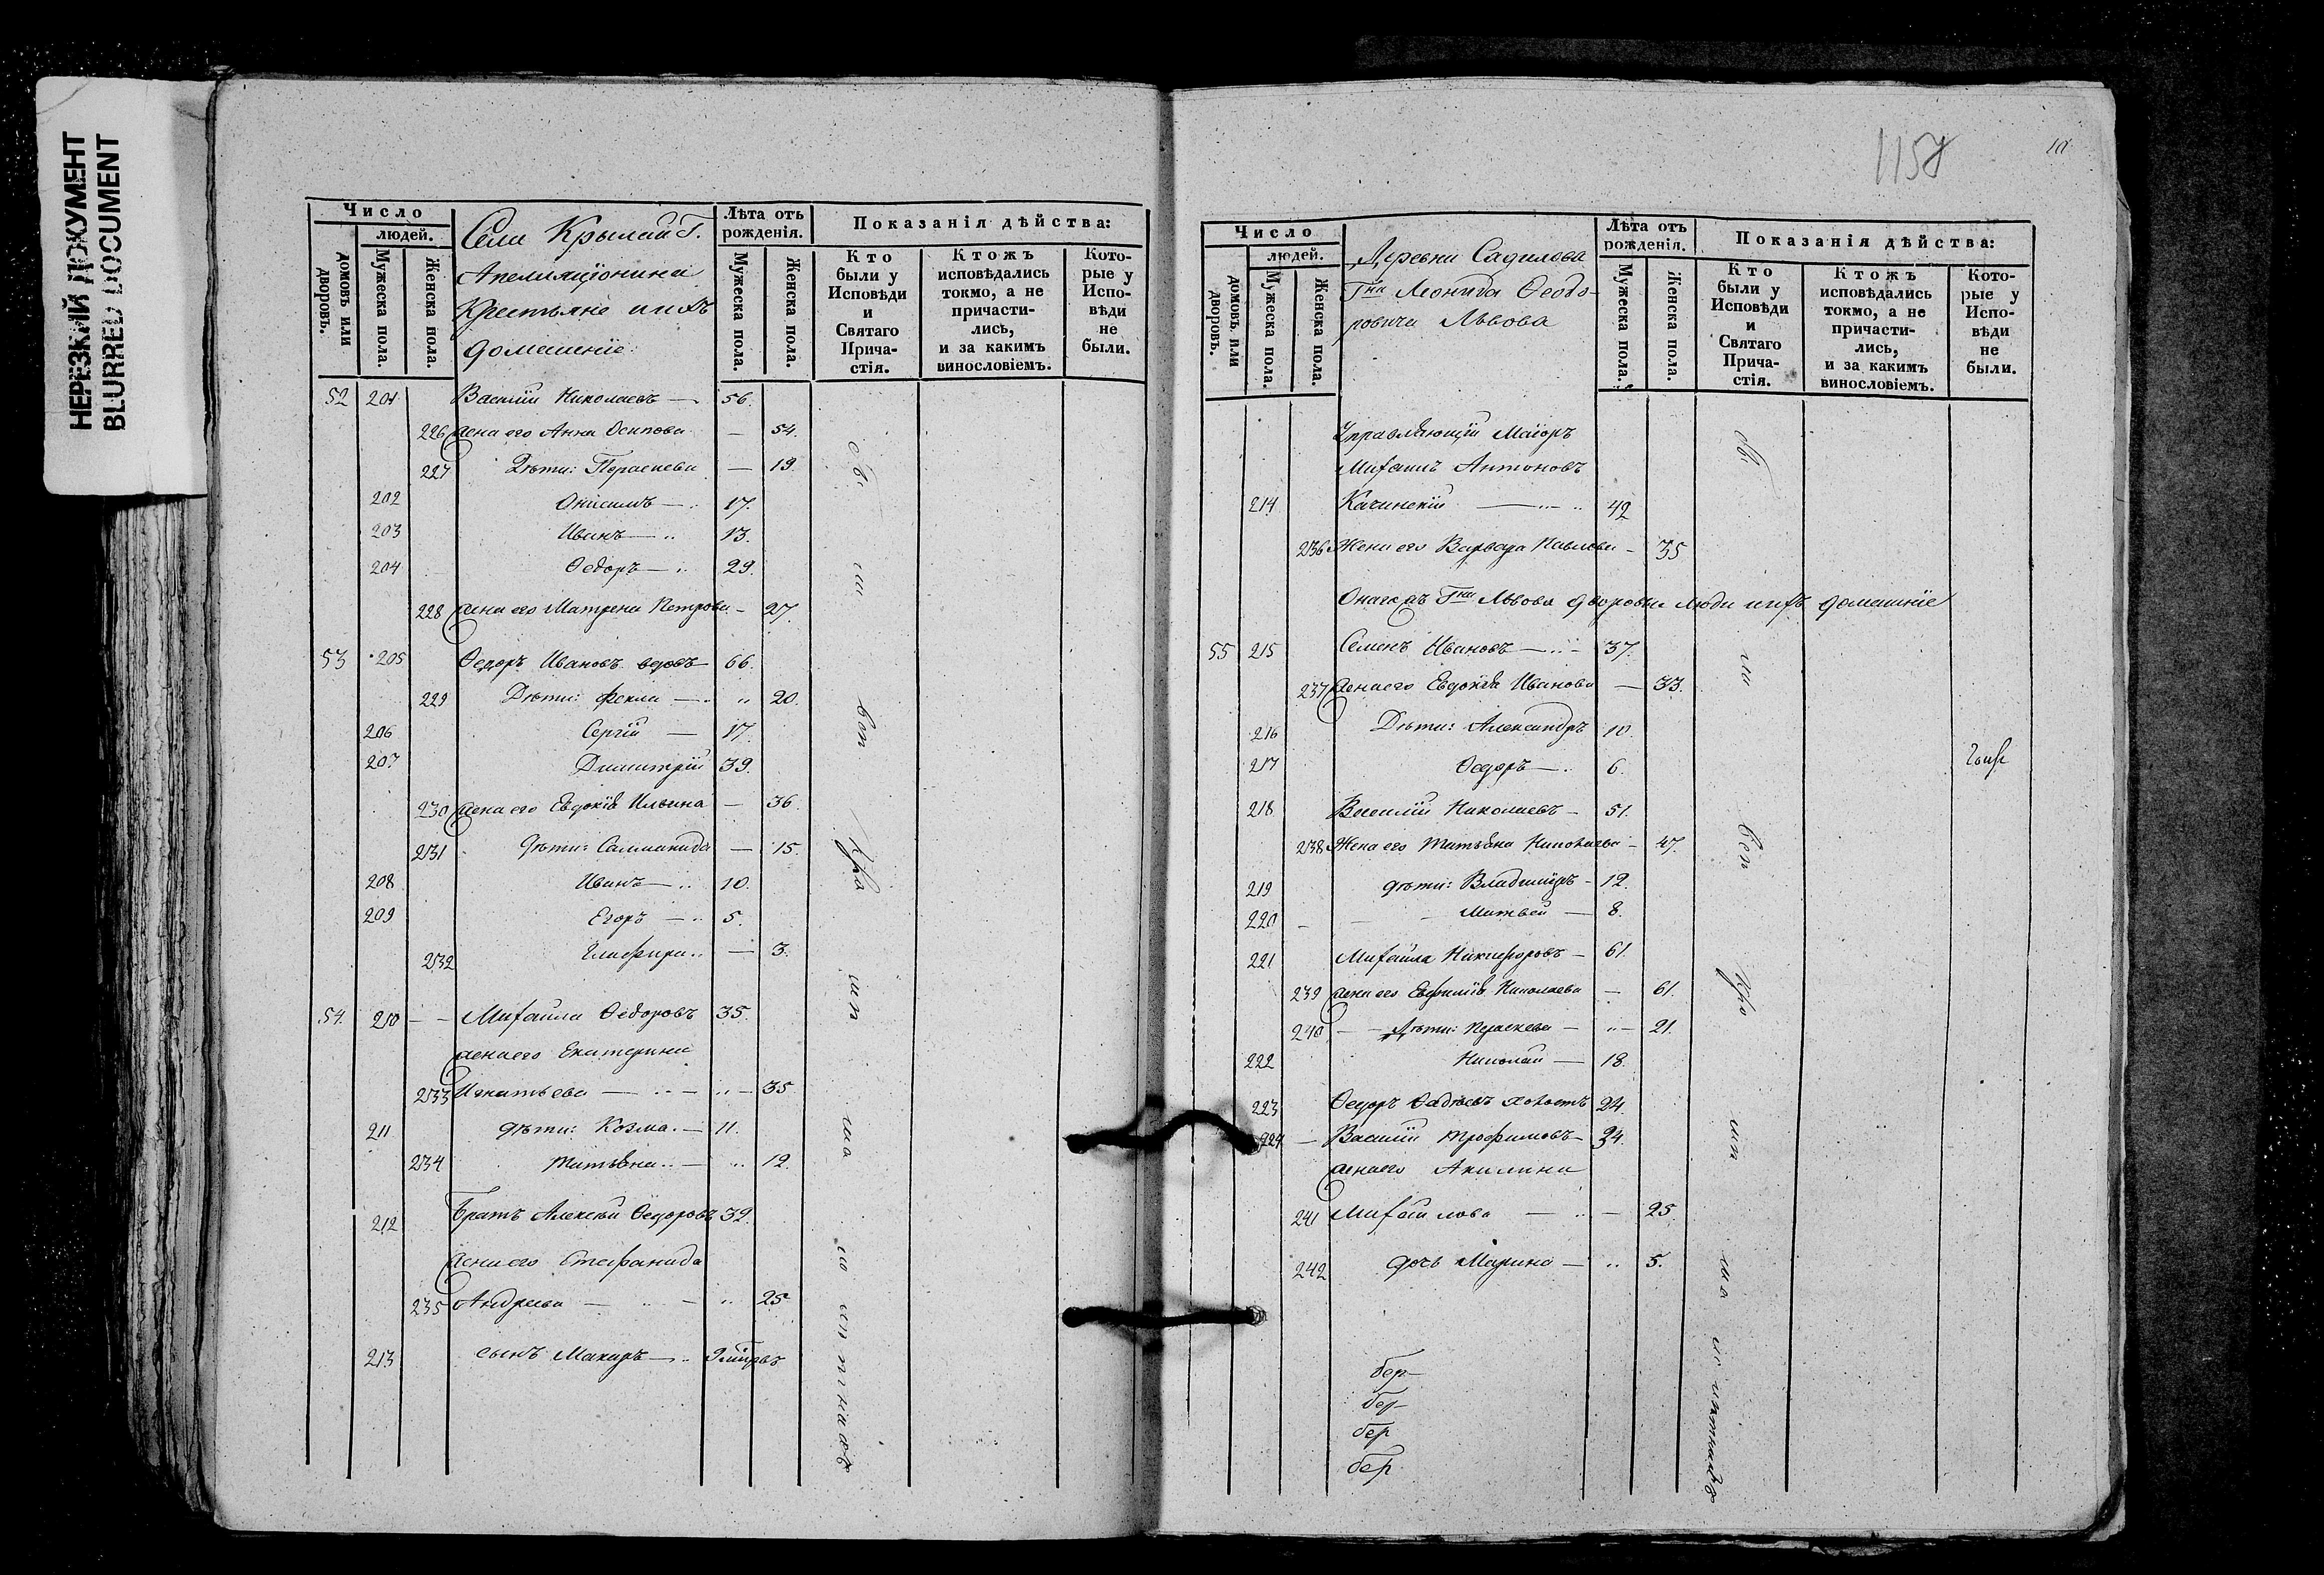 НЕРЕЗКИЙ ДОКУМЕНТ
BLURRED DOCUMENT
Число
людей.
домовъ или дворовъ.
Мужеска пола.
Женска пола.
Села Крылай Г.
Апелляціонина
Крестьяне и ихъ
домашніе:
Лѣта отъ рожденія.
Мужеска пола.
Женска пола.
Показанія дѣйства:
Кто были у Исповѣди и Святаго Прича-стія.
Ктожъ исповѣдались токмо, а не причасти-лись, и за какимъ винословіемъ.
Кото-рые у Испо-вѣди не были.
52 201 Василій Николаевъ — 56.
226 жена его Анна Осипова — 54.
227 Дѣти: Параскева — 19.
202 Онисимъ — 17.
203 Иванъ — 13.
204 Ѳедоръ — 29.
228 жена его Матрена Петрова — 27.
53 205 Ѳедоръ Ивановъ вдовъ 66.
229 Дѣти: Фекла — „ 20.
206 Сергій — 17.
207 Димитрій 39.
230 жена его Евдокія Ильина — 36.
231 дѣти: Саломанида — 15.
208 Иванъ — 10.
209 Егоръ — 5.
232 Глафира — 3.
54. 210 Михаила Ѳедоровъ 35.
жена его Екатерина
233 Игнатьева — „ — 35
211 дѣти: Козма. — 11.
234 Татьяна — „ 12.
212 Братъ Алексѣй Ѳедоровъ 32.
жена его Стефанида
235 Андреева — „ 25.
213 сынъ Макаръ —
1158
10
Число
людей.
домовъ или дворовъ.
Мужеска пола.
Женска пола.
Деревни Садилова
Гна Леонида Ѳеодо-
ровича Львова
Лѣта отъ рожденія.
Мужеска пола.
Женска пола.
Показанія дѣйства:
Кто были у Исповѣди и Святаго Прича-стія.
Ктожъ исповѣдались токмо, а не причасти-лись, и за какимъ винословіемъ.
Кото-рые у Испо-вѣди не были.
Управляющій Маіоръ
Михаилъ Антоновъ
214 Качинскій — 42
236 Жена его Варвара Павлова — 35
Гна Львова дворовые люди и ихъ домашніе
55 215 Семенъ Ивановъ — 37.
237 жена его Евдокія Иванова — 33.
216 Дѣти: Александръ 10.
217 Ѳедоръ — 6.
218 Василій Николаевъ — 51.
238 Жена его Татьяна Николаева — 47.
219 дѣти: Владимиръ — 12.
220 Матвей — 8.
221 Михаила Никифоровъ — 61.
239 жена его Евфимія Николаева — 61.
240 Дѣти: Праскева — „ — 21.
222 Николай — 18.
223 Ѳедоръ Фадѣевъ холостъ 24.
224 — Василій Трофимовъ — 24.
жена его Акилина
241 Михайлова — 25
242 дочь Марина — „ 5.
бер
бер
бер
бер